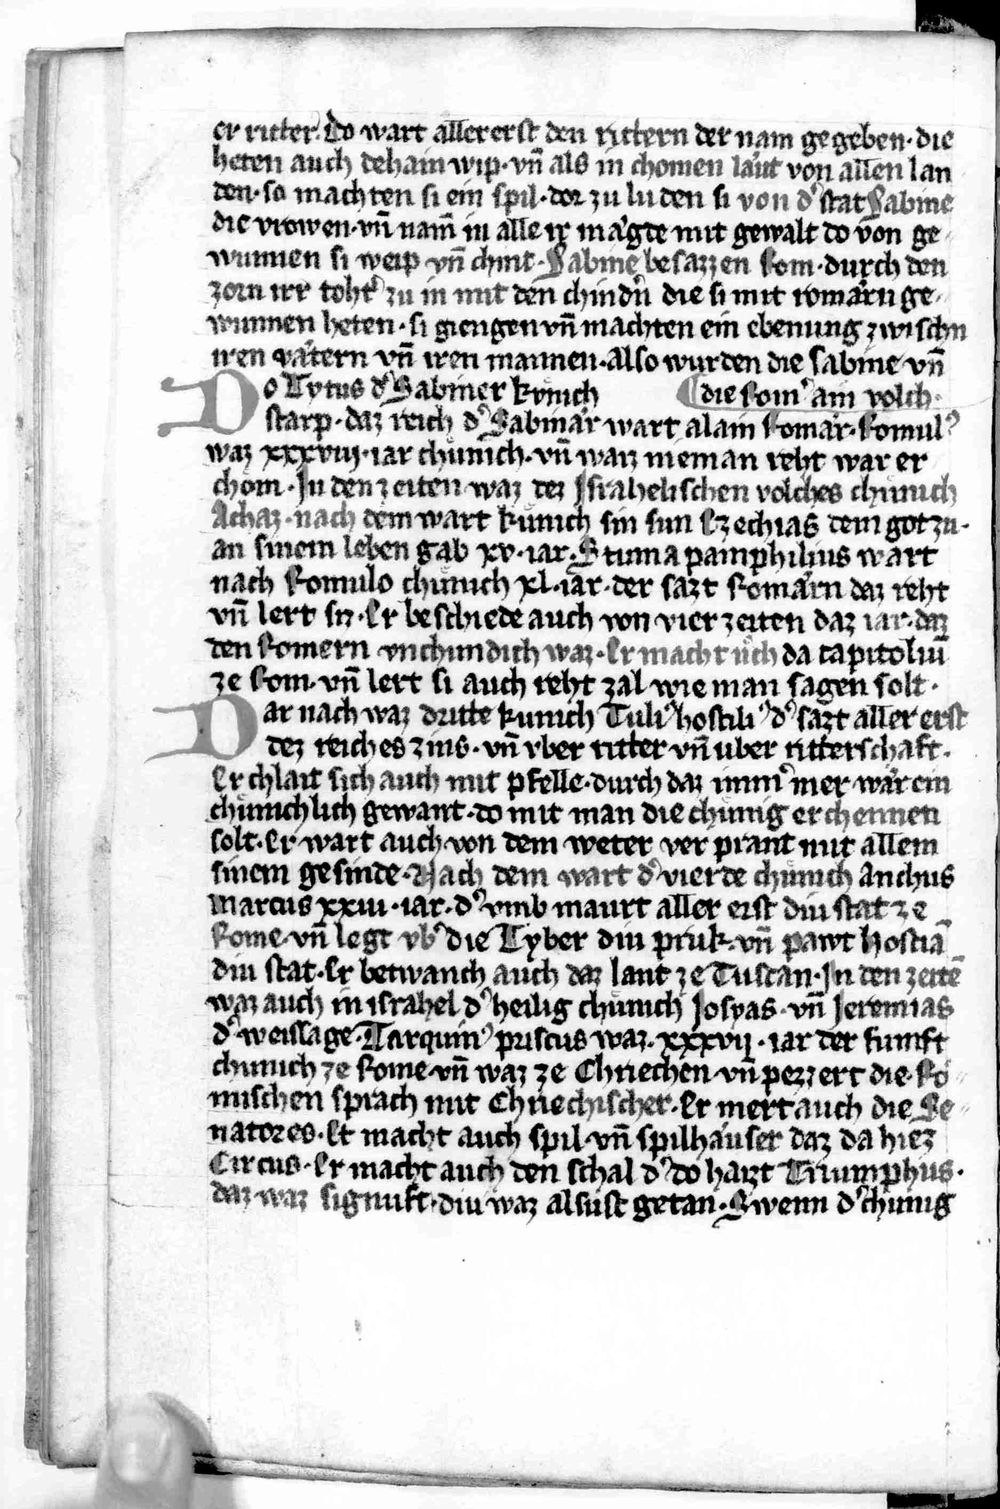 er ritter. Do wart allererst den rittern der nam gegeben· die
heten auch dehain wip· vn̄ als in chomen laut von allen lan
den· so machten si ein spil· dor zu luden si von dˀ stat Sabine
die vrowen· vn̄ nam̄ in alle ir mägde mit gewalt do von ge-
wunnen si weip vn̄ chint· Sabine besazzen Rom· durch den
zorn irr tohtˀ zu in mit den chindn̄ die si mit romärn ge-
wunnen heten· si giengen vn̄ machten ein ebenung zwischn
iren vätern vn̄ iren mannen· also wurden die sabine vn̄
Do Tytus dˀ Sabiner kvnich ¶ die Romˀ ain volch·
starp· daz reich dˀ Sabinär wart alain Romär· Romulˀ
waz xxxviij· iar chünich· vn̄ waiz nieman reht war er
chom· In den zeiten waz dez Israhelischen volches chünich
Achaz· nach dem wart künich sin sun Ezechias dem got zu·
an sinem leben gab xv· iar· Numa pamphilius wart
nach Romulo chünich xl· iar· der sazt Romärn daz reht
vn̄ lert sis· Er beschiede auch von vier zeiten daz iar· daz
den Romern vnchundich waz· Er macht üch da capitoliū
ze Rom· vn̄ lert si auch reht zal wie man sagen solt·
Dar nach waz dritte kunich Tuliˀ hostiliˀ dˀ sazt aller erst
dez reiches zins· vn̄ vber ritter vn̄ uber ritterschaft·
Er chlait sich auch mit pfelle· durch daz immˀ mer· wär ein
chünichlich gewant· do mit man die chünig erchennen
solt· Er wart auch von dem weter ver prant mit allem
sinem gesinde· Nach dem wart dˀ vierde chünich Anchus
marcus xxiii· iar· dˀ vmb maurt aller erst diu stat ze
Rome· vn̄ legt vbˀ die Tyber diu pruk· vn̄ pawt Hostiā
diu stat· Er betwanch auch daz lant ze Tuscan· In den zeitē
waz auch in israhel dˀ heilig chünich Josyas· vn̄ Jeremias
dˀ weissage· Tarquinˀ priscus waz· xxxvij· iar der fumft
chunich ze Rome· vn̄ waz ze Chriechen· vn̄ pezzert die· Rö-
mischen sprach mit Chriechischer· Er mert auch die Se-
natores· Er macht auch spil· vn̄ spilhäuser daz da hiez
Circus· Er macht auch den schal dˀ do haizt Triumphus·
daz waz signuft· diu waz alsust getan· Swenn dˀ chünig